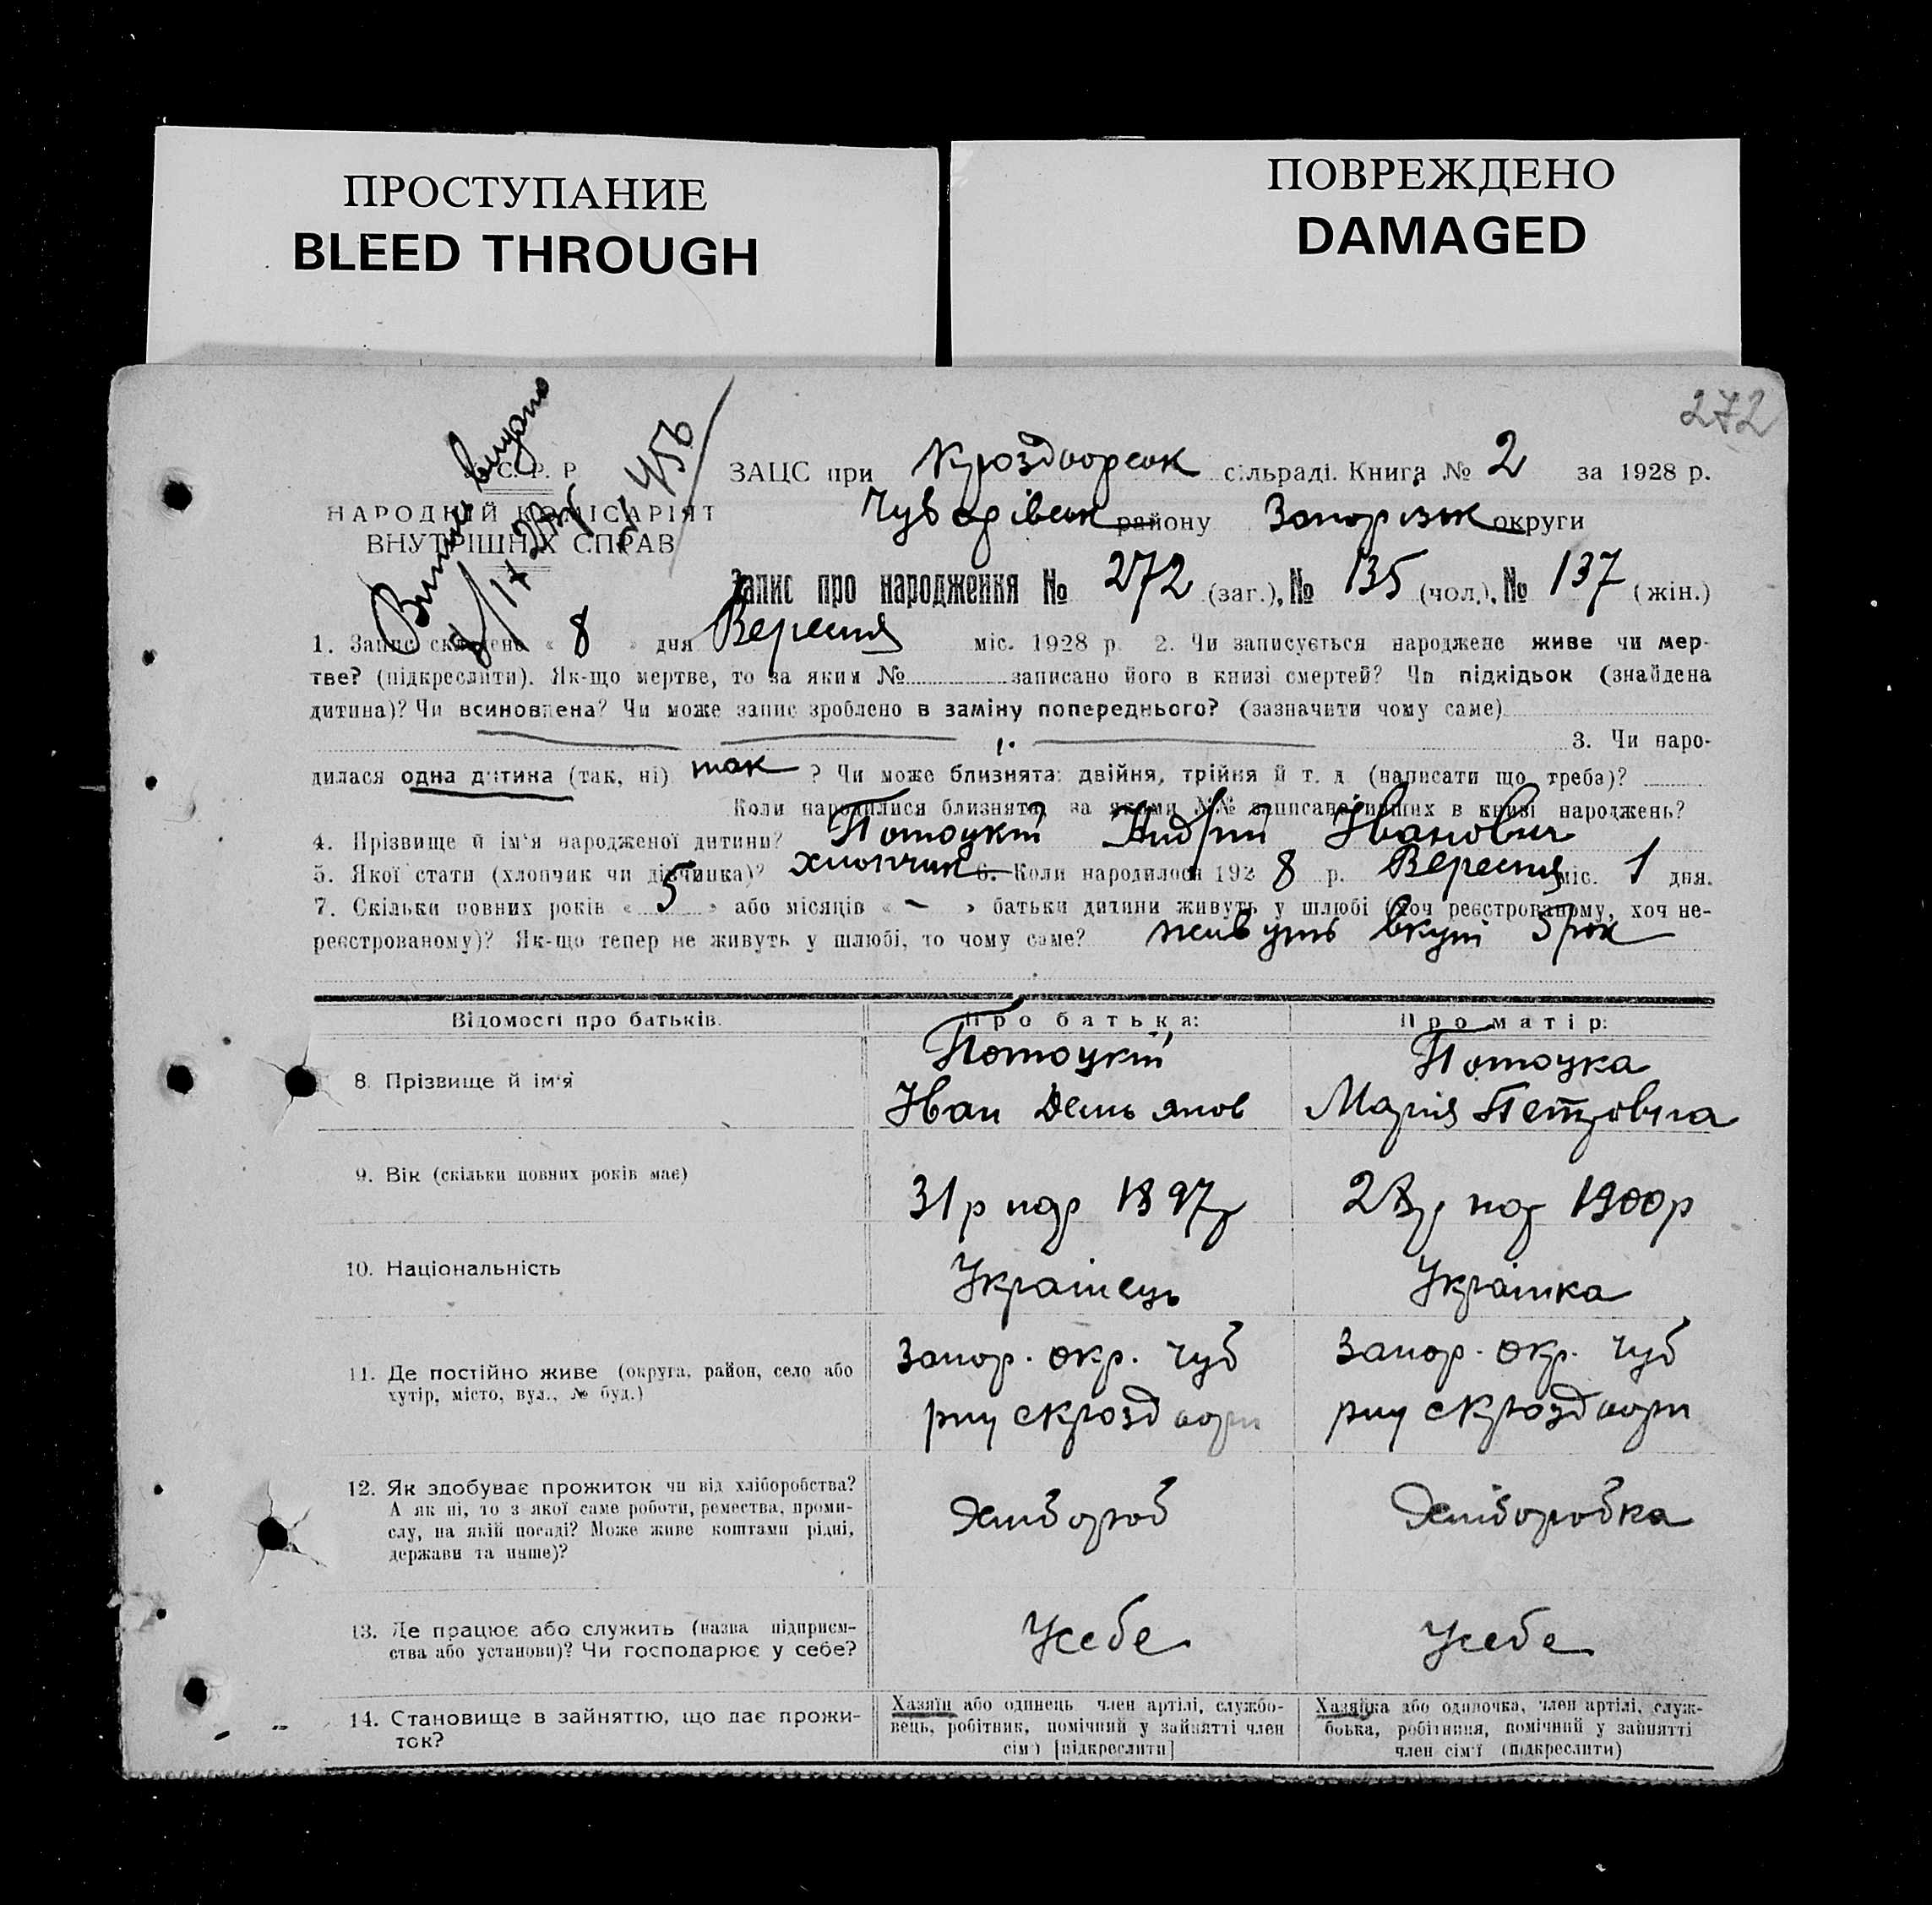 ПРОСТУПАНИЕ
BLEED THROUGH
ПОВРЕЖДЕНО
DAMAGED
272
Витяг видано
С. Р. Р
НАРОДНИЙ КОМІСАРІЯТ
ВНУТРІШНІХ СПРАВ
ЗАЦС при сільраді. Книга № 2 за 1928 р.
Чубарівськ району Запорізьк округи
Запис про народження № 272 (заг.), № 135 (чол.), № 137 (жін.)
1. Запис складено « 8 » дня Вересня міс. 1928 р. 2. Чи записується народжене живе чи мер-
тве? (підкреслити). Як-що мертве, то за яким № записано його в книзі смертей? Чи підкідьок (знайдена
дитина)? Чи всиновлена? Чи може запис зроблено в заміну попереднього? (зазначити чому саме)
3. Чи наро-
дилася одна дитина (так, ні) так ? Чи може близнята: двійня, трійня й т. д. (написати що треба)?
Коли народилися близнята, за якими №№ записано інших в книзі народжень?
4. Прізвище й ім'я народженої дитини? Потоцкій Андрій Іванович
5. Якої стати (хлопчик чи дівчинка)? хлопчик 6. Коли народилося 192 8 р. Вересня міс. 1 дня.
7. Скільки повних років « 5 » або місяців « – » батьки дитини живуть у шлюбі (хоч реєстрованому, хоч не-
реєстрованому)? Як-що тепер не живуть у шлюбі, то чому саме? живуть вкупі 5 рок
Відомості про батьків.
Про батька:
Про матір:
8. Прізвище й ім'я
Потоцкій
Іван Демьянов
Потоцка
Марія Петровна
9. Вік (скільки повних років має)
31 р нар 1897 р
28 р нар 1900 р
10. Національність
Українець
Українка
11. Де постійно живе (округа, район, село або
хутір, місто, вул., № буд.)
Запор. окр. Чуб
Запор. окр. Чуб
12. Як здобуває прожиток чи від хліборобства?
А як ні, то з якої саме роботи, ремества, проми-
слу, на якій посаді? Може живе коштами рідні,
держави та инше)?
Хлібороб
Хліборобка
13. Де працює або служить (назва підприєм-
ства або установи)? Чи господарює у себе?
У себе
У себе
14. Становище в зайняттю, що дає прожи-
ток?
Хазяїн або одинець член артілі, службо-
вець, робітник, помічний у зайнятті член
сім'ї [підкреслити]
Хазяйка або одиночка, член артілі, служ-
бовка, робітниця, помічний у зайнятті
член сім'ї (підкреслити)